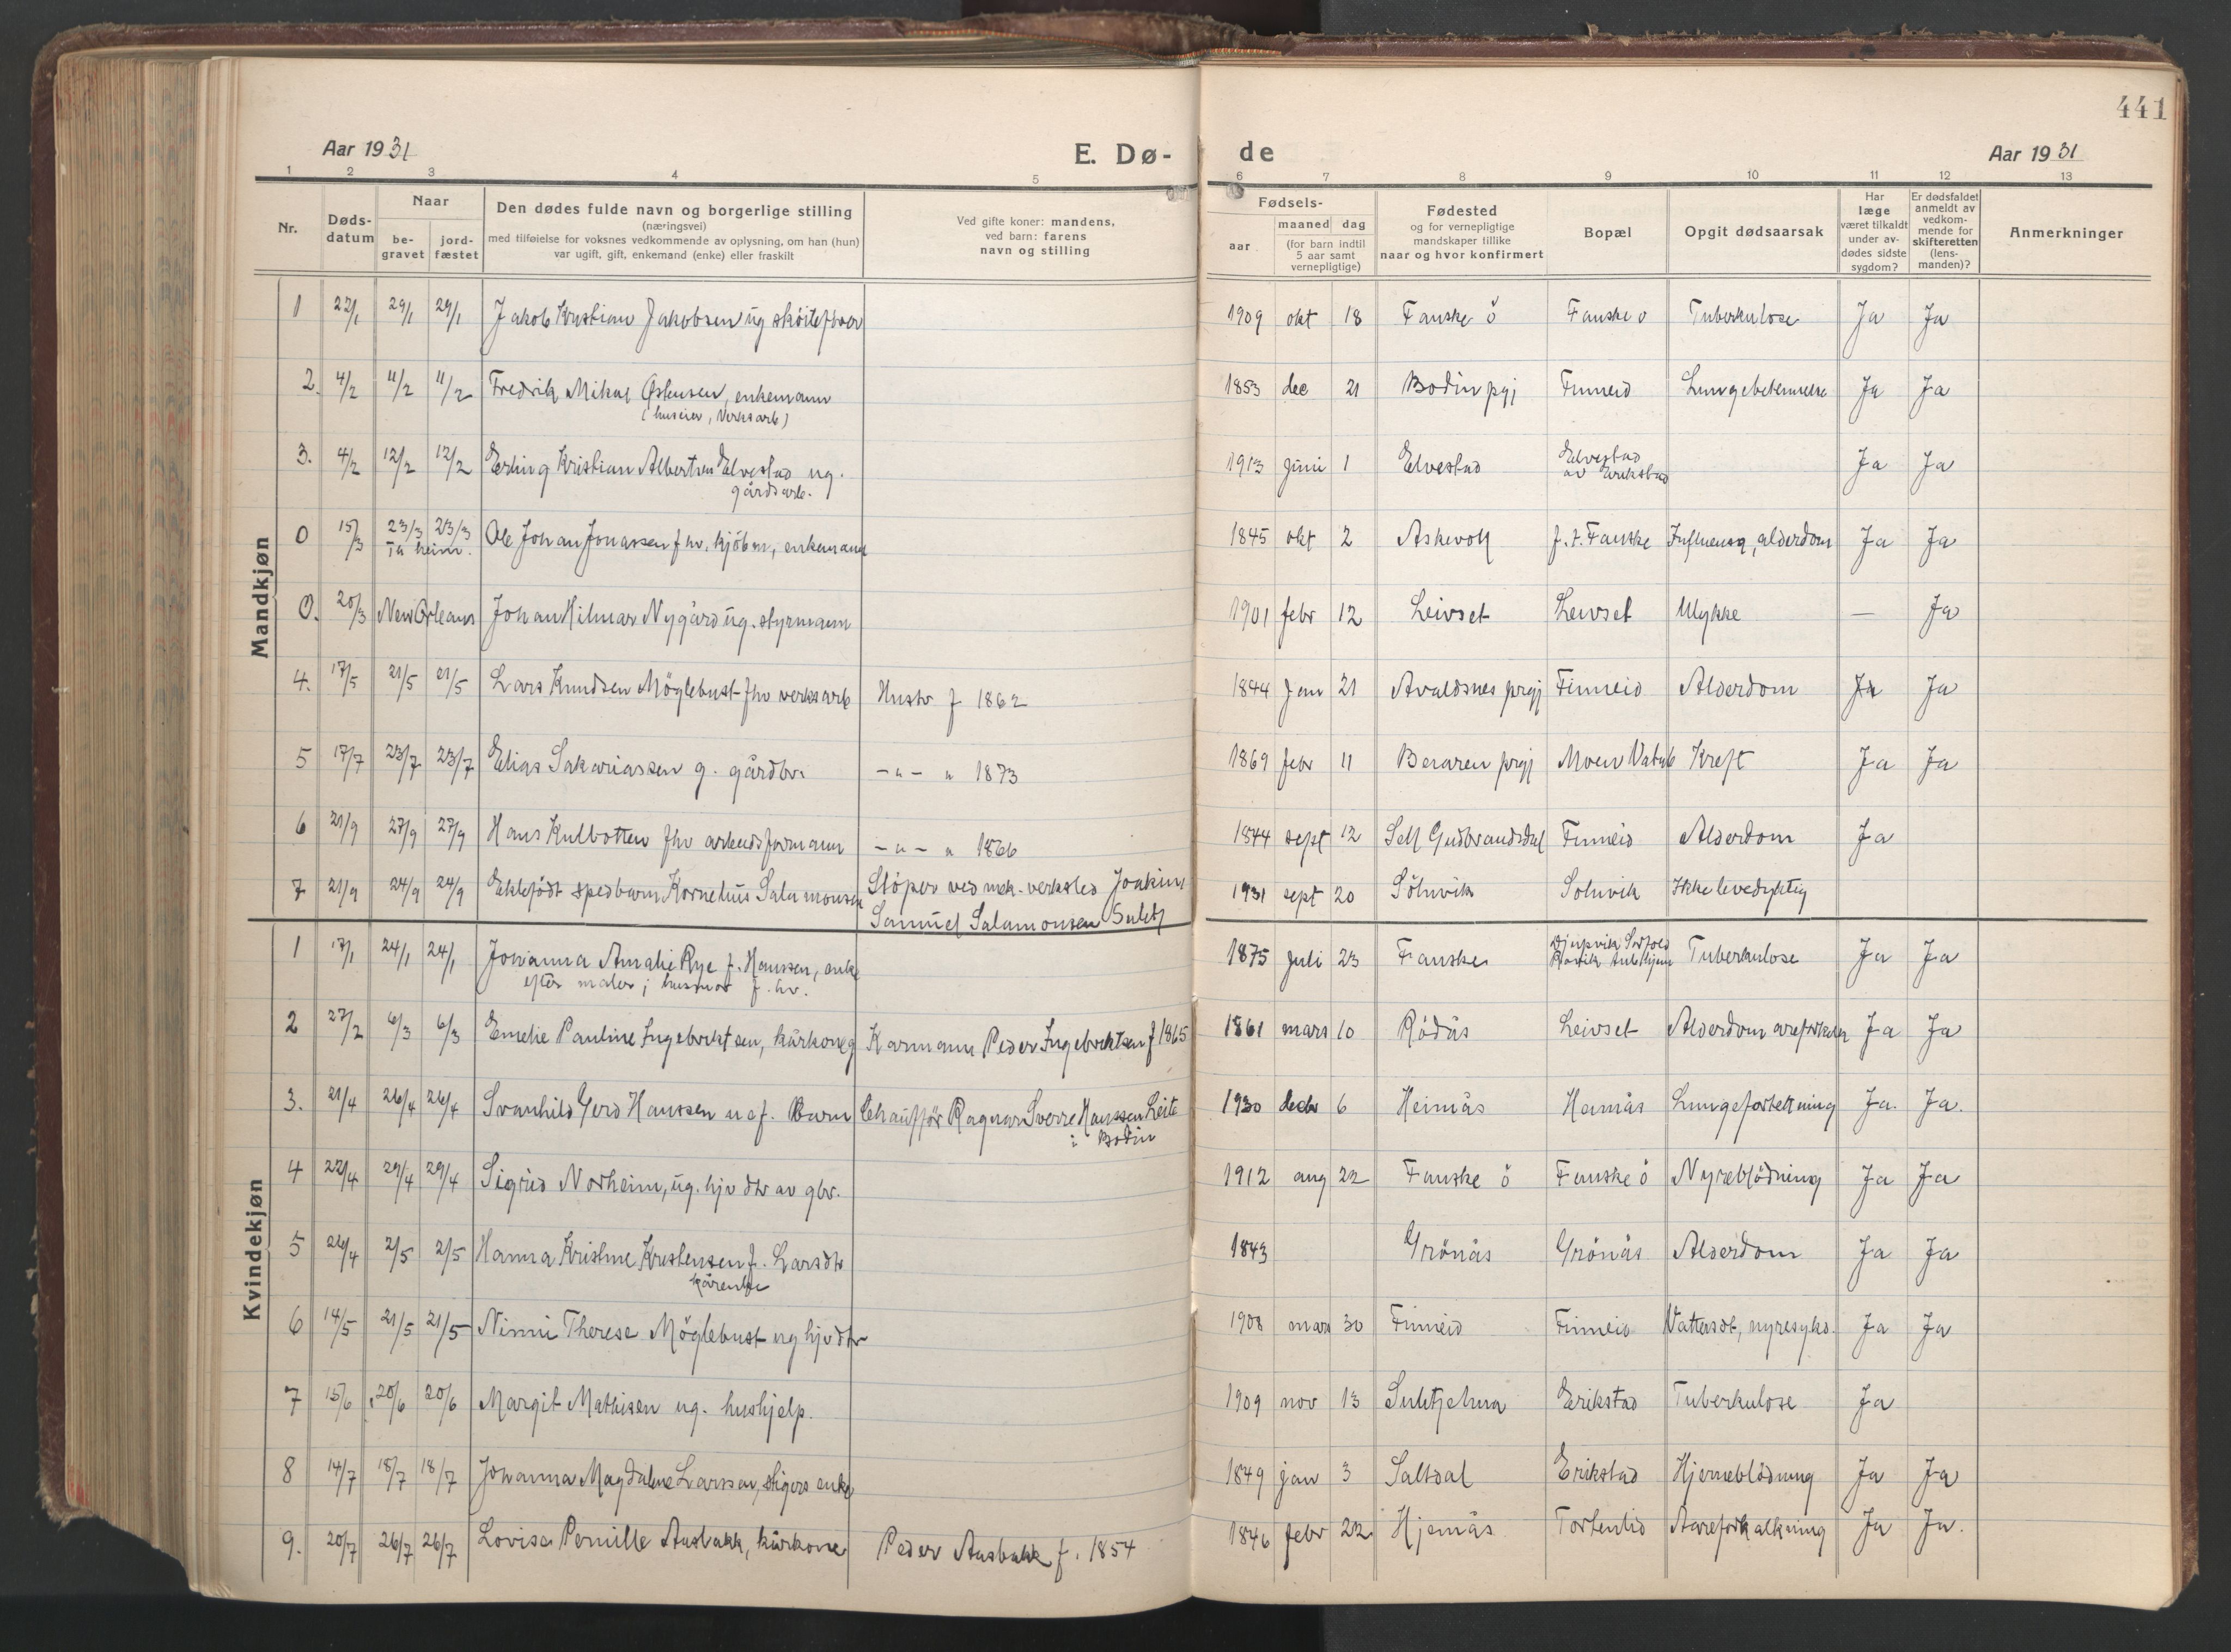 441
Aar 1931
E. Dø-
de
Aar 1931
1 2 3 4 5 6 7 8 9 10 11 12 13
Nr.
Døds-
datum
Naar
be-
gravet
jord-
fæstet
Den dødes fulde navn og borgerlige stilling
(næringsvei)
med tilføielse for voksnes vedkommende av oplysning, om han (hun)
var ugift, gift, enkemand (enke) eller fraskilt
Ved gifte koner: mandens,
ved barn: farens
navn og stilling
Fødsels-
aar
maaned dag
(for barn indtil
5 aar samt
vernepligtige)
Fødested
og for vernepligtige
mandskaper tillike
naar og hvor konfirmert
Bopæl
Opgit dødsaarsak
Har
læge
været tilkaldt
under av-
dødes sidste
sygdom?
Er dødsfaldet
anmeldt av
vedkom-
mende for
skifteretten
(lens-
manden)?
Anmerkninger
Mandkjøn
1 22/1 29/1 29/1 Jakob Kristian Jakobsen ug 1909 okt 18 Fauske ö Fauske ö Tuberkulose Ja Ja
2. 4/2 11/2 11/2 Fredrik Mikal Östensen, enkemann 1853 dec 21 Bodin pgj Finneid Lungebetennelse Ja Ja
(huseier, Verksarb)
3. 4/2 12/2 12/2 Erling Kristian Albertsen Elvestad ug. 1913 juni 1 Elvestad Elvestad Ja Ja
gårdsarb. av Erikstad
0 15/3 23/3 23/3 Ole Johan Jonassen fhv. kjöbm, enkemann 1845 okt 2 Askevoll f.t. Fauske Influensa, alderdom Ja Ja
Tå heim.
0. 20/3 New Orleans Johan Hilmar Nygård ug. styrmann 1901 febr 12 Leivset Leivset Ulykke — Ja
4. 17/5 21/5 21/5 Lars Knudsen Möglebust fhv verksarb Hustr f 1862 1844 Jan 21 Avaldsnes prgj Finneid Alderdom Ja Ja
5 17/7 23/7 23/7 Elias Sakariassen g. gårdbr. -"- " 1873 1869 febr 11 Beiaren prgj Moen Kreft Ja Ja
6 21/9 27/9 27/9 Hans Kulbotten fhv arbeidsformann -"- " 1866 1844 sept 12 Sell Gudbrandsdal Finneid Alderdom Ja
7 21/9 24/9 24/9 Ektefödt spedbarn Kornelius Salamonsen Stöper ved mek. verksted Joakim 1931 sept 20 Sölvvik Solvvik Ikke levedyktig
Samuel Salamonsen Sulitj
Kvindekjøn
1 17/1 24/1 24/1 Johanna Amalie Rye f. Hanssen, enke 1875 juli 23 Fauske Djupvik Sörfold Tuberkulose Ja Ja
efter maler; husmor f.hv.
2 27/2 6/3 6/3 Emelie Pauline Ingebriktsen, kårkone g Karmann Peder Ingebriktsen f 1865 1861 mars 10 Rödås Leivset Alderdom Ja Ja
3. 21/4 26/4 26/4 Svanhild Gerd Hanssen uef. Barn Chaufför Ragnar Sverre Hanssen Leite 1930 decbr 6 Heimås Hemås Lungefortettning Ja. Ja.
i Bodin
4 22/4 29/4 29/4 Sigrid Norheim, ug. hjv dtr av gbr. 1912 aug 22 Fauske ö Fauske ö Nyreblödning Ja Ja
5 26/4 2/5 2/5 Hanna Kristine Kristensen f. Larsdtr 1843 Grönås Grönås Alderdom Ja Ja
kårenke
6 14/5 21/5 21/5 Ninni Therese Möglebust ug hjv dtr 1908 mars 30 Finneid Finneid Vattersot, nyresykd. Ja Ja
7 15/6 20/6 20/6 Margit Mathisen ug. hushjelp. 1909 nov 13 Sulitjelma Erikstad Tuberkulose Ja
8 14/7 18/7 18/7 Johanna Magdalene Larssen, stigers enke 1849 jan 3 Saltdal Erikstad Hjerneblödning Ja Ja
9. 20/7 26/7 26/7 Lovise Pernille Ausbakk, kårkone Peder Ausbakk f. 1854 1846 febr 22 Hjemås Tortenlid Aareforkalkning Ja Ja.